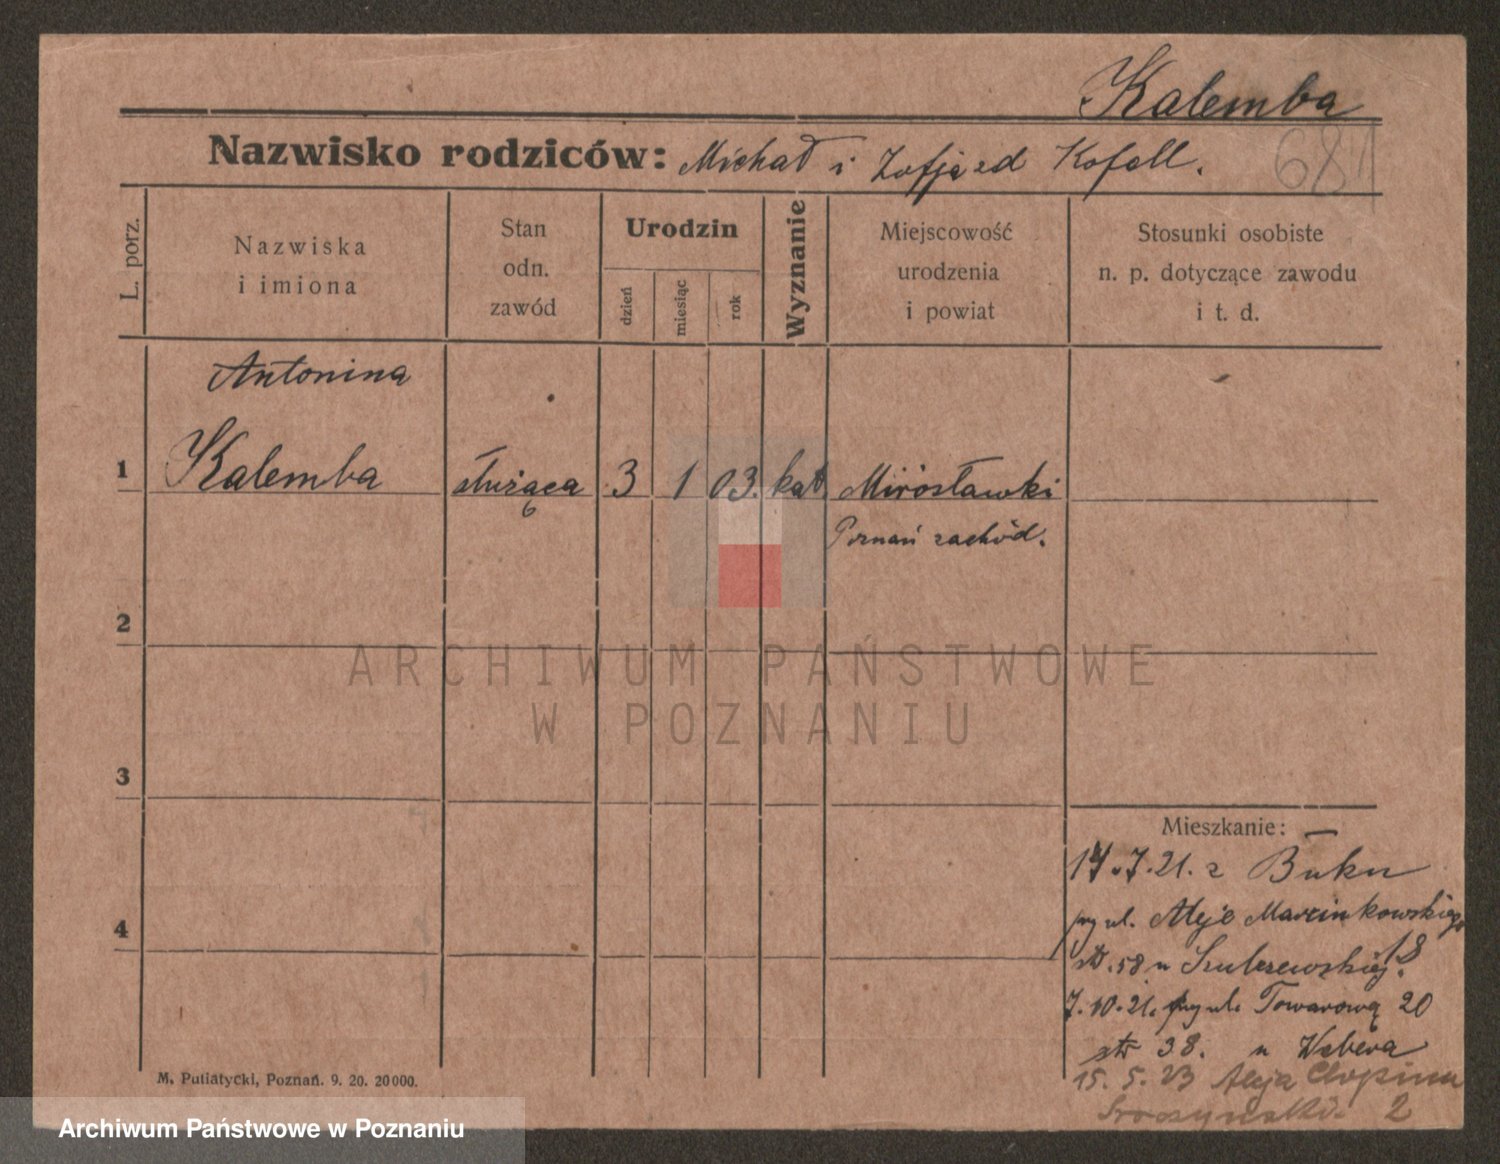 Kalemba
Nazwisko rodziców: Michał i Zofja zd Kofall.
681
L. porz.
Nazwiska
i imiona
Stan
odn.
zawód
Urodzin
dzień
miesiąc
rok
Wyznanie
Miejscowość
urodzenia
i powiat
Stosunki osobiste
n. p. dotyczące zawodu
i t. d.
Antonina
1 Kalemba służąca 3 1 03. kat Mirosławki
Poznań zachód.
2
ARCHIWUM PAŃSTWOWE
W POZNANIU
3
4
Mieszkanie: —
14.7.21. z Buku
przy ul. Aleje Marcinkowskiego
str. 58 u Szulczewskiej 18.
7.10.21. przy ul. Towarową 20
str 38. u Webera
15. 5. 23 Aleja Chopina
2
M. Putiatycki, Poznań. 9. 20. 20000.
Archiwum Państwowe w Poznaniu